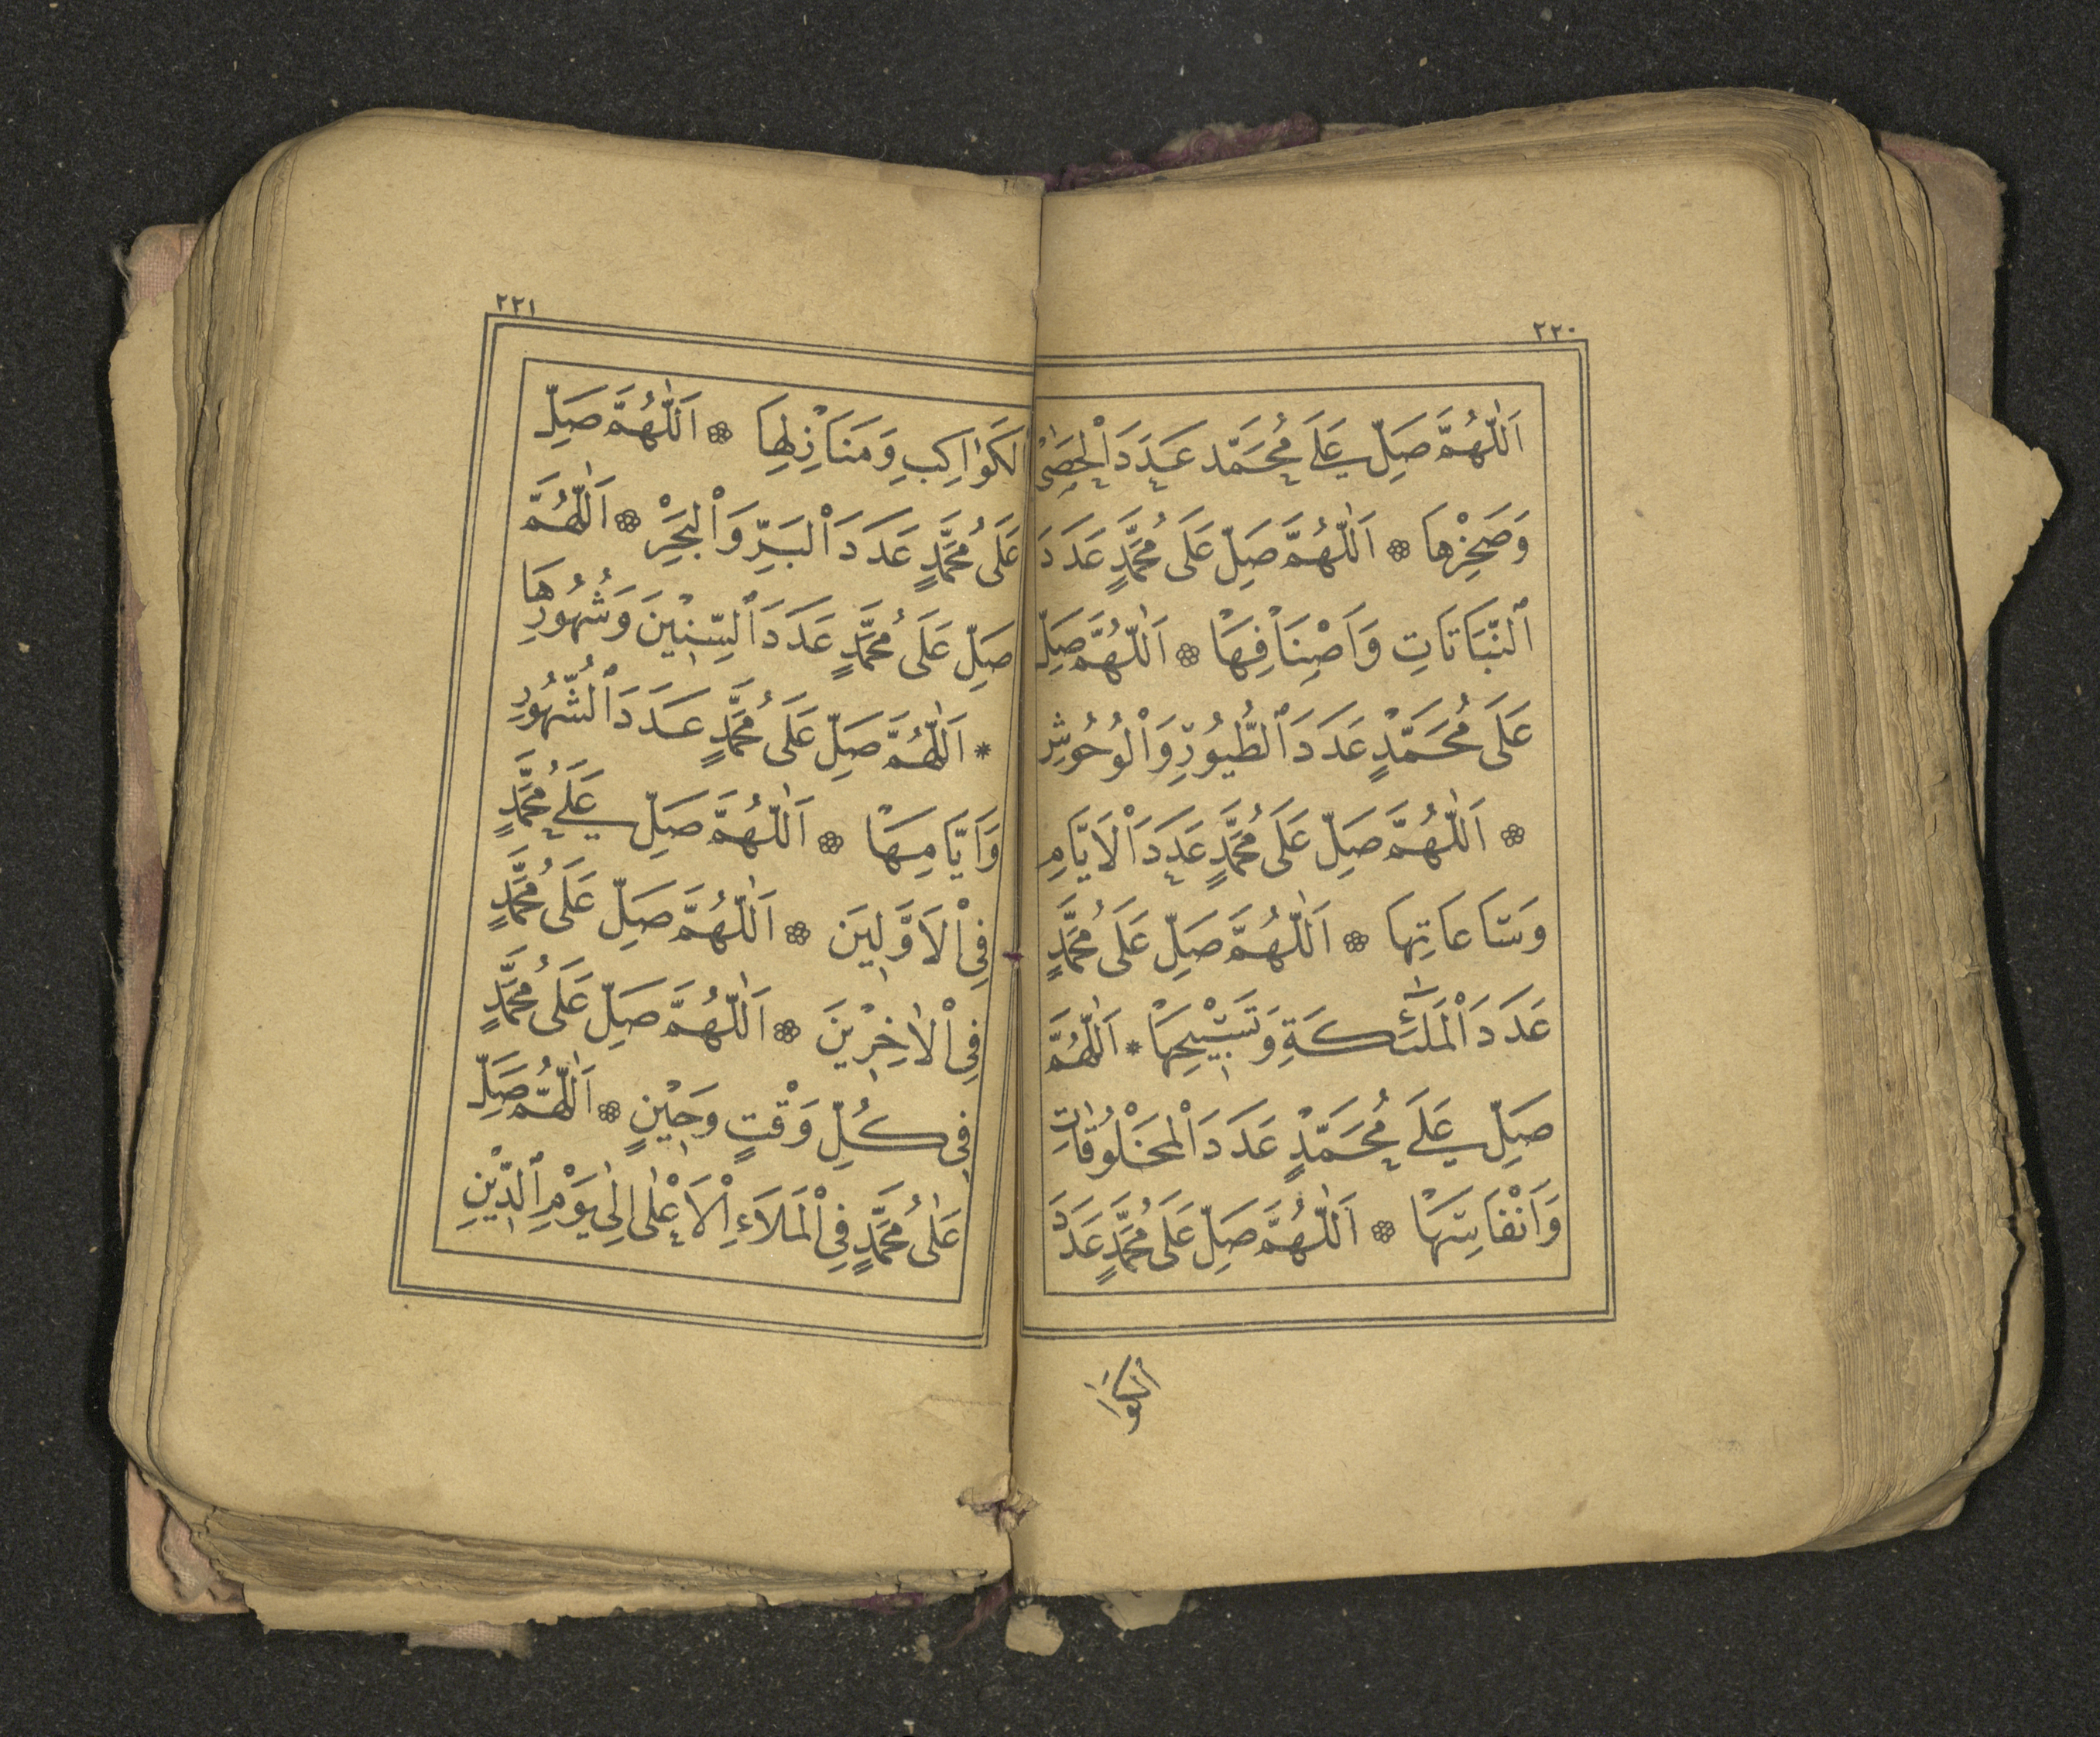 ٢٢٠
اَللّٰهُمَّ صَلِّ عَلَى مُحَمَّد عَدَدَ اْلحَصٰى
وَصَخْرِهَا ۞ اَللّٰهُمَّ صَلِّ عَلَى مُحَمَّدٍ عَدَدَ
ٱلنَّبَاتَاتِ وَاَصْنَافِهَا ۞ اَللّٰهُمَّ صَلِّ
عَلَى مُحَمَّدٍ عَدَدَ ٱلطُّيُورِ وَاْلوُحُوشِ
۞ اَللّٰهُمَّ صَلِّ عَلَى مُحَمَّدٍ عَدَدَ اْلاَيَّامِ
وَسَاعَاتِهَا ۞ اَللّٰهُمَّ صَلِّ عَلَى مُحَمَّدٍ
عَدَدَ اْلمَلٰٓئِكَةِ وَتَسْبِيْحِهَا * اَللّٰهُمَّ
صَلِّ عَلَى مُحَمَّدٍ عَدَدَ اْلمَخْلُوقَاتِ
وَاَنْفَاسِهَا ۞ اَللّٰهُمَّ صَلِّ عَلَى مُحَمَّدٍ عَدَدَ
الكَوَا
٢٢١
الكَوَاكِبِ وَمَنَازِلِهَا ۞ اَللّٰهُمَّ صَلِّ
عَلَى مُحَمَّدٍ عَدَدَ اْلبَرِّ وَاْلبَحْرِ ۞ اَللّٰهُمَّ
صَلِّ عَلَى مُحَمَّدٍ عَدَدَ ٱلسِّنِيْنَ وَشُهُورِهَا
* اَللّٰهُمَّ صَلِّ عَلَى مُحَمَّدٍ عَدَدَ ٱلشُّهُورِ
وَاَيَّامِهَا ۞ اَللّٰهُمَّ صَلِّ عَلَى مُحَمَّدٍ
فِى اْلاَوَّلِينَ ۞ اَللّٰهُمَّ صَلِّ عَلَى مُحَمَّدٍ
فِى اْلاٰخِرِيْنَ ۞ اَللّٰهُمَّ صَلِّ عَلَى مُحَمَّدٍ
فِى كُلِّ وَقْتٍ وَحِيْنٍ ۞ اَللّٰهُمَّ صَلِّ
عَلٰى مُحَمَّدٍ فِى اْلمَلاَءِ اْلاَعْلٰى اِلٰى يَوْمِ ٱلدِّيْنِ